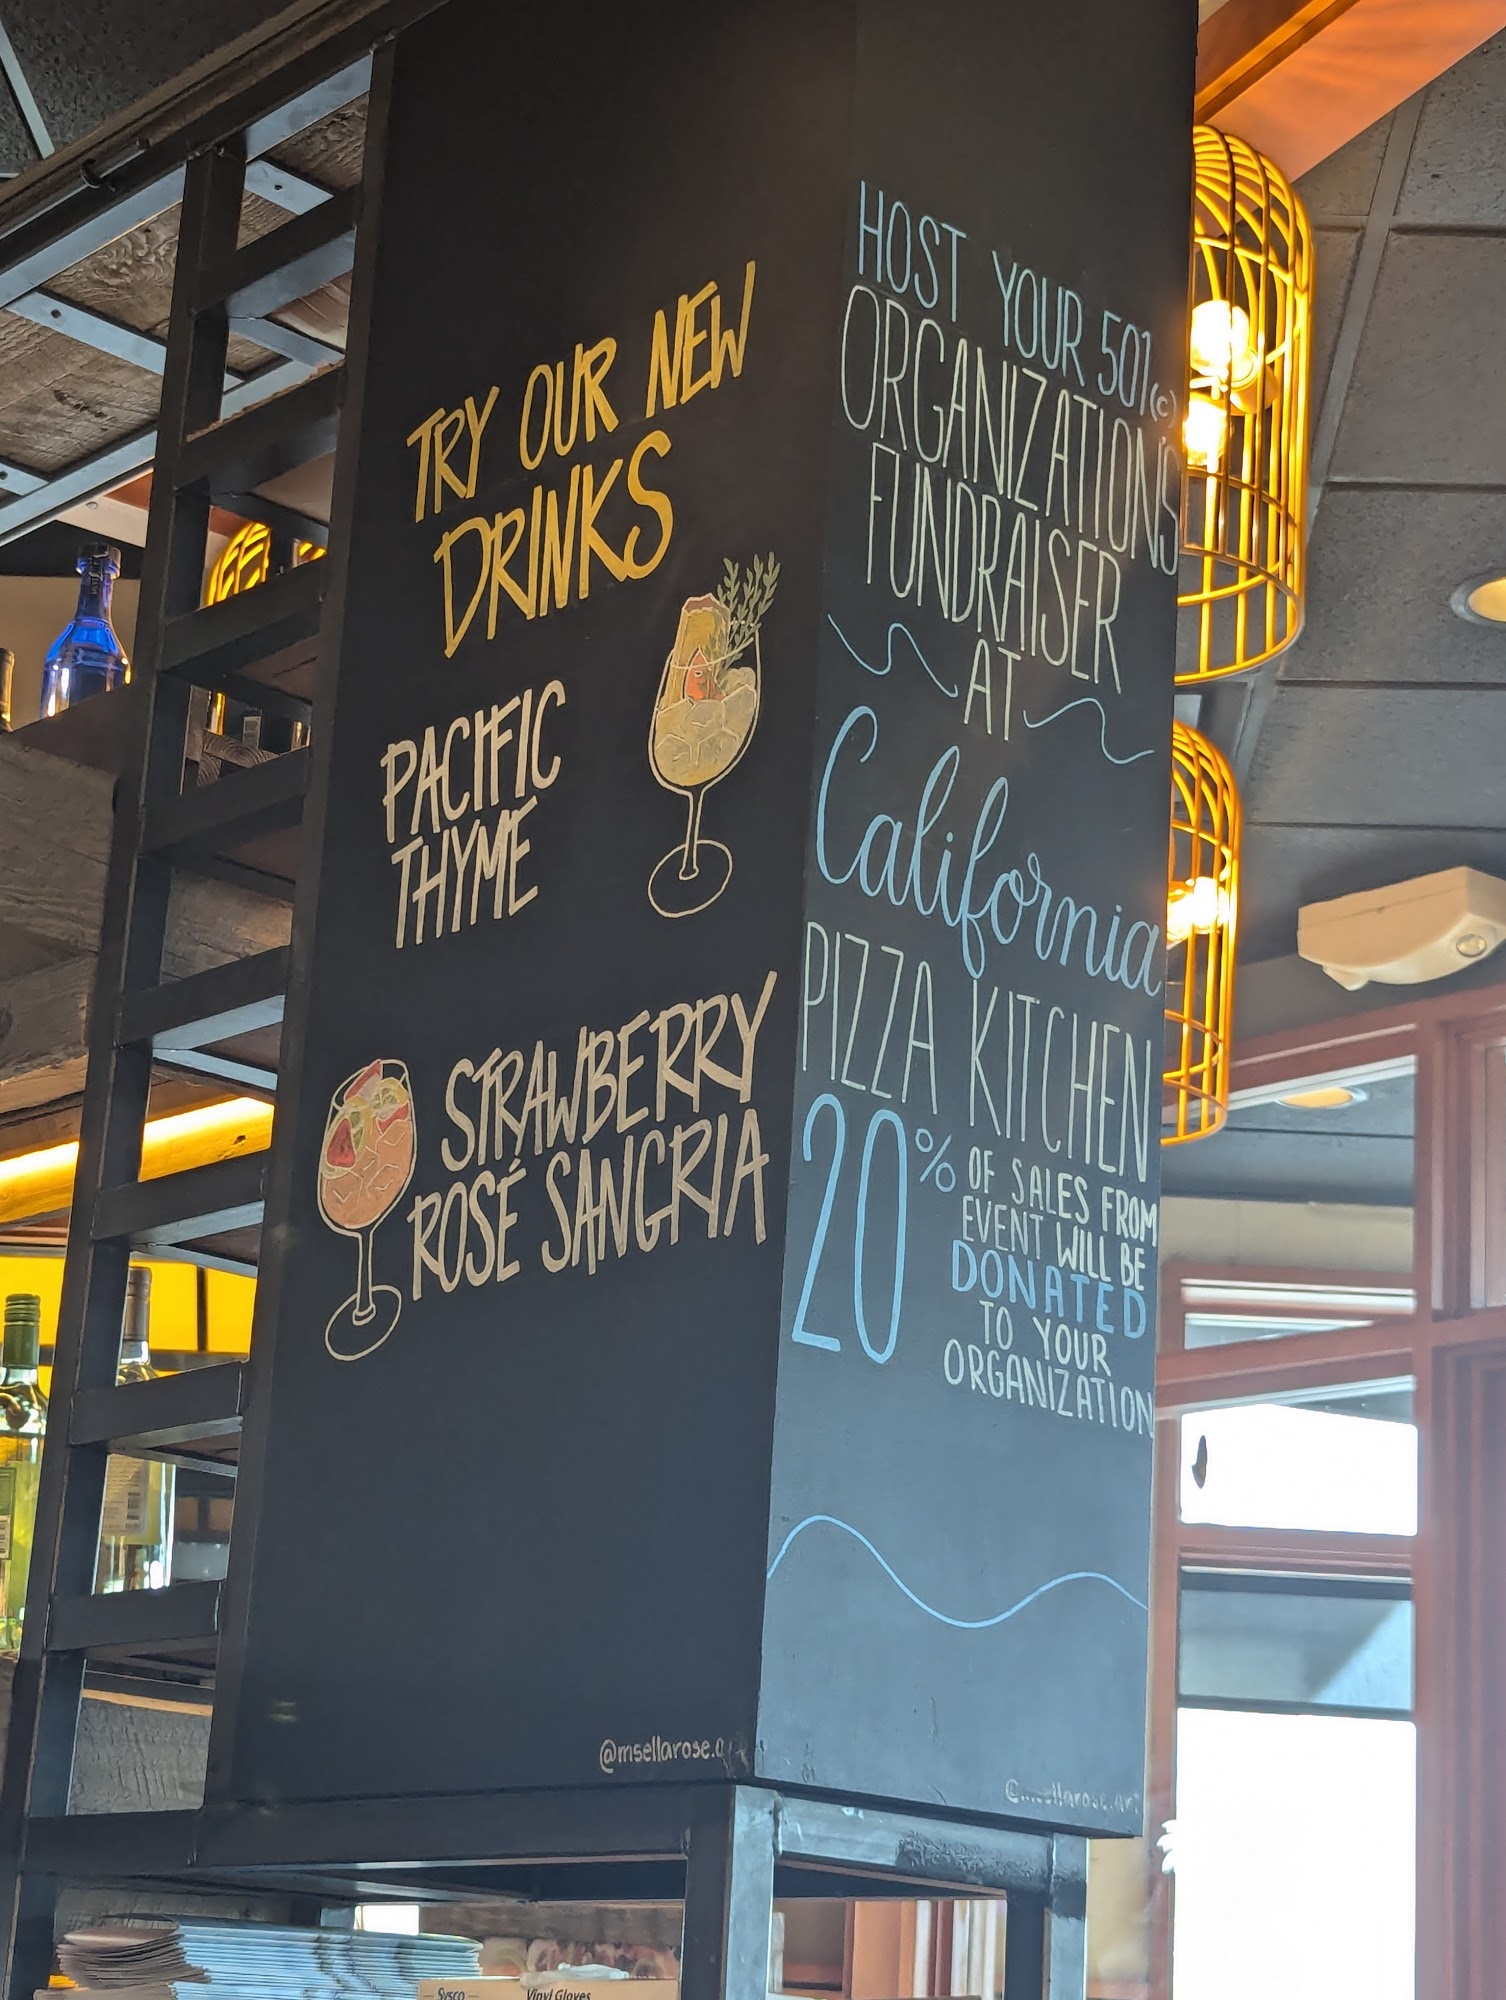 TRY OUR NEW
DRINKS
PACIFIC
THYME
STRAWBERRY
ROSÉ SANGRIA
@msellarose.art
HOST YOUR 501(c)
ORGANIZATION'S
FUNDRAISER
AT
California
PIZZA KITCHEN
20% OF SALES FROM
EVENT WILL BE
DONATED
TO YOUR
ORGANIZATION
@msellarose.art
Sysco
Vinyl Gloves